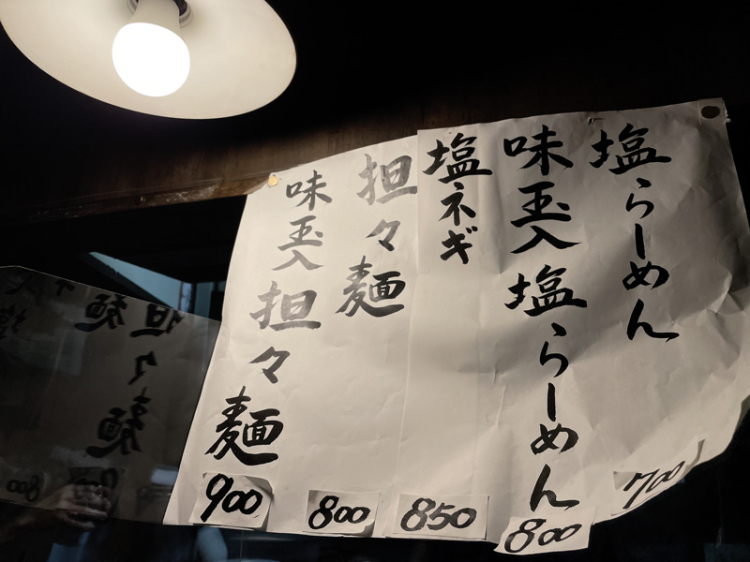 塩らーめん
700
味玉入塩らーめん
800
塩ネギ
850
担々麺
800
味玉入担々麺
900
担々麺
800